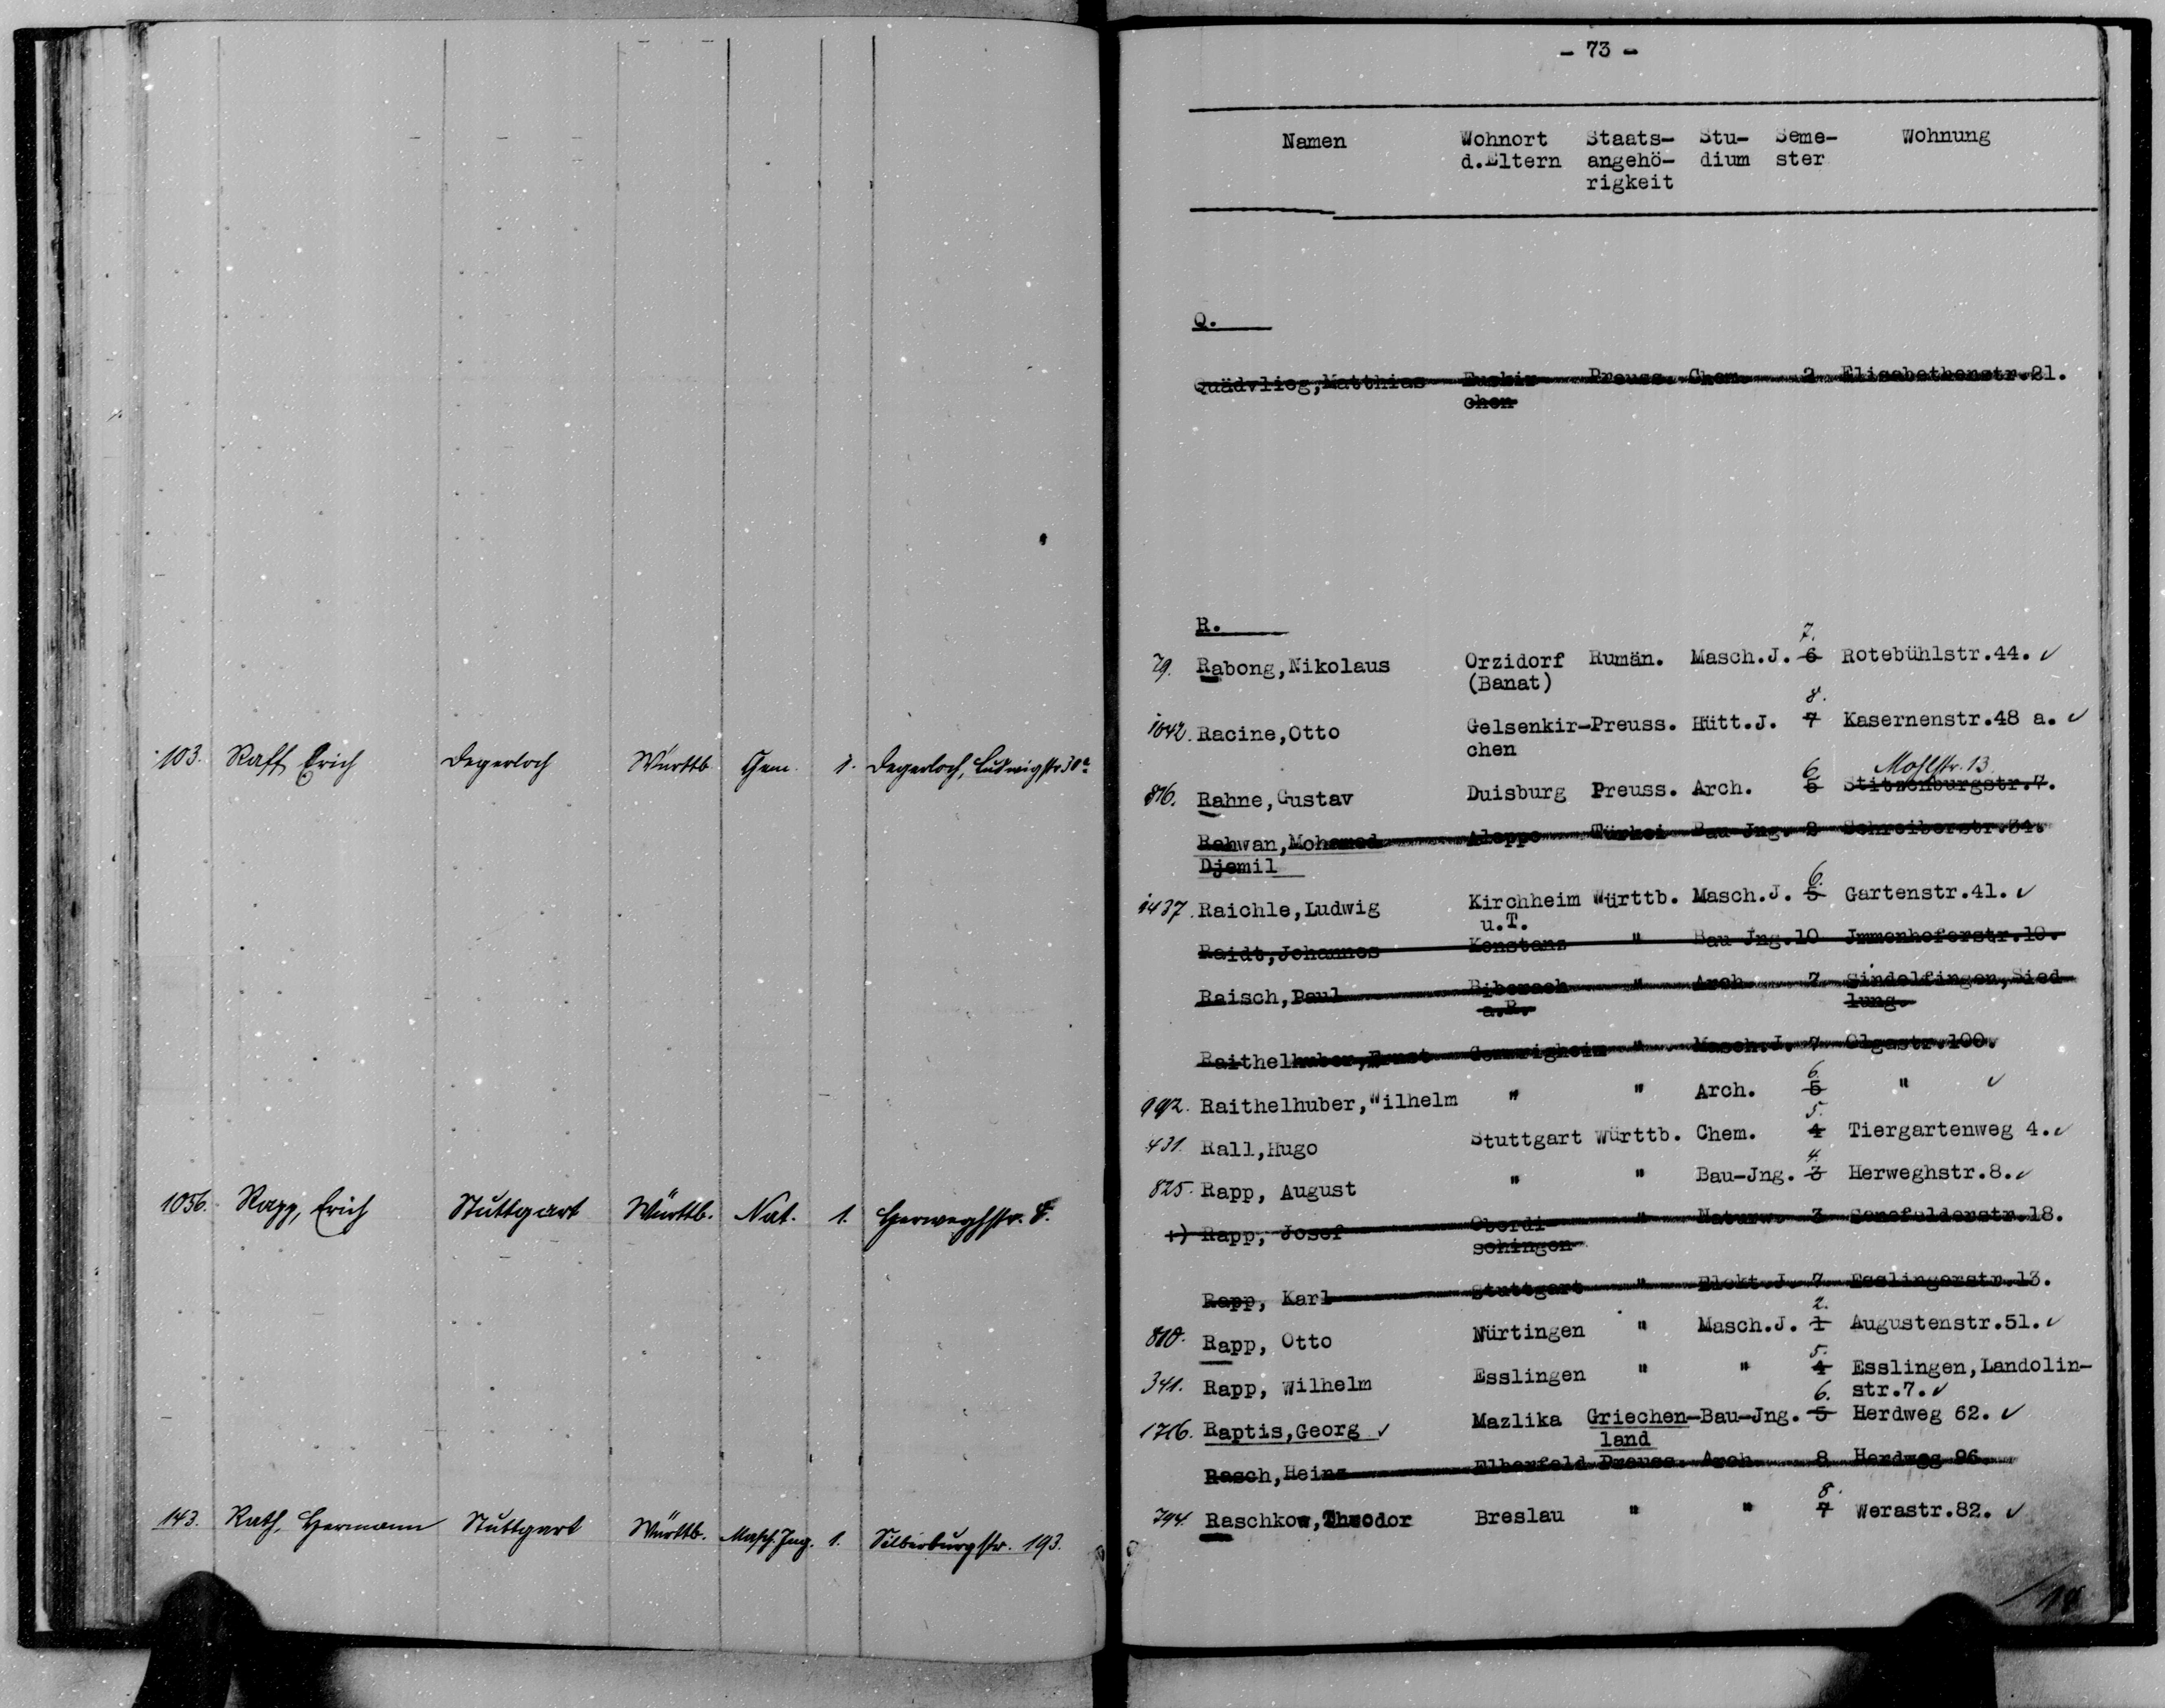 103. Raff Erich Degerloch Württb. Chem. 1. Degerloch, Ludwigstr 30a.
1056. Rapp, Erich Stuttgart Württb. Nat. 1. Herweghstr. 8.
143. Rath, Hermann Stuttgart Württb. Masch. Ing. 1. Silberburgstr. 193.
- 73 -
Namen Wohnort Staats- Stu- Seme- Wohnung
d.Eltern angehö- dium ster
rigkeit
Q.
Quädvlieg,Matthias Euskir- Preuss. Chem. 2 Elisabethenstr.21.
chen
R.
7.
79. Rabong,Nikolaus Orzidorf Rumän. Masch.J. 6 Rotebühlstr.44. ✓
(Banat)
8.
1042. Racine,Otto Gelsenkir-Preuss. Hütt.J. 7 Kasernenstr.48 a. ✓
chen
6. Mohlstr. 13.
816. Rahne,Gustav Duisburg Preuss. Arch. 5 Stitzenburgstr.7.
Rahwan,Mohamed Aleppo Türkei Bau-Jng. 2 Schreiberstr.34.
Djemil
6.
1437. Raichle,Ludwig Kirchheim Württb. Masch.J. 5 Gartenstr.41. ✓
u.T.
Raidt,Johannes Konstanz " Bau-Jng.10 Jmmenhoferstr.10.
Raisch,Paul Biberach " Arch. 7 Sindelfingen,Sied-
a.R. lung.
Raithelhuber,Ernst Gemmrigheim " Masch.J. 7 Olgastr.100.
6.
992. Raithelhuber,Wilhelm " " Arch. 5 " ✓
5.
431. Rall,Hugo Stuttgart Württb. Chem. 4 Tiergartenweg 4. ✓
4.
825. Rapp, August " " Bau-Jng. 3 Herweghstr.8. ✓
+) Rapp, Josef Oberdi- " Naturw. 3 Senefelderstr.18.
schingen
Rapp, Karl Stuttgart " Elekt.J. 7 Esslingerstr.13.
2.
810. Rapp, Otto Nürtingen " Masch.J. 1 Augustenstr.51. ✓
5.
341. Rapp, Wilhelm Esslingen " " 4 Esslingen,Landolin-
6. str.7. ✓
1716. Raptis,Georg ✓ Mazlika Griechen-Bau-Jng. 5 Herdweg 62. ✓
land
Rasch,Heinz Elberfeld Preuss. Arch. 8 Herdweg 96.
8.
794. Raschkow,Theodor Breslau " " 7 Werastr.82. ✓